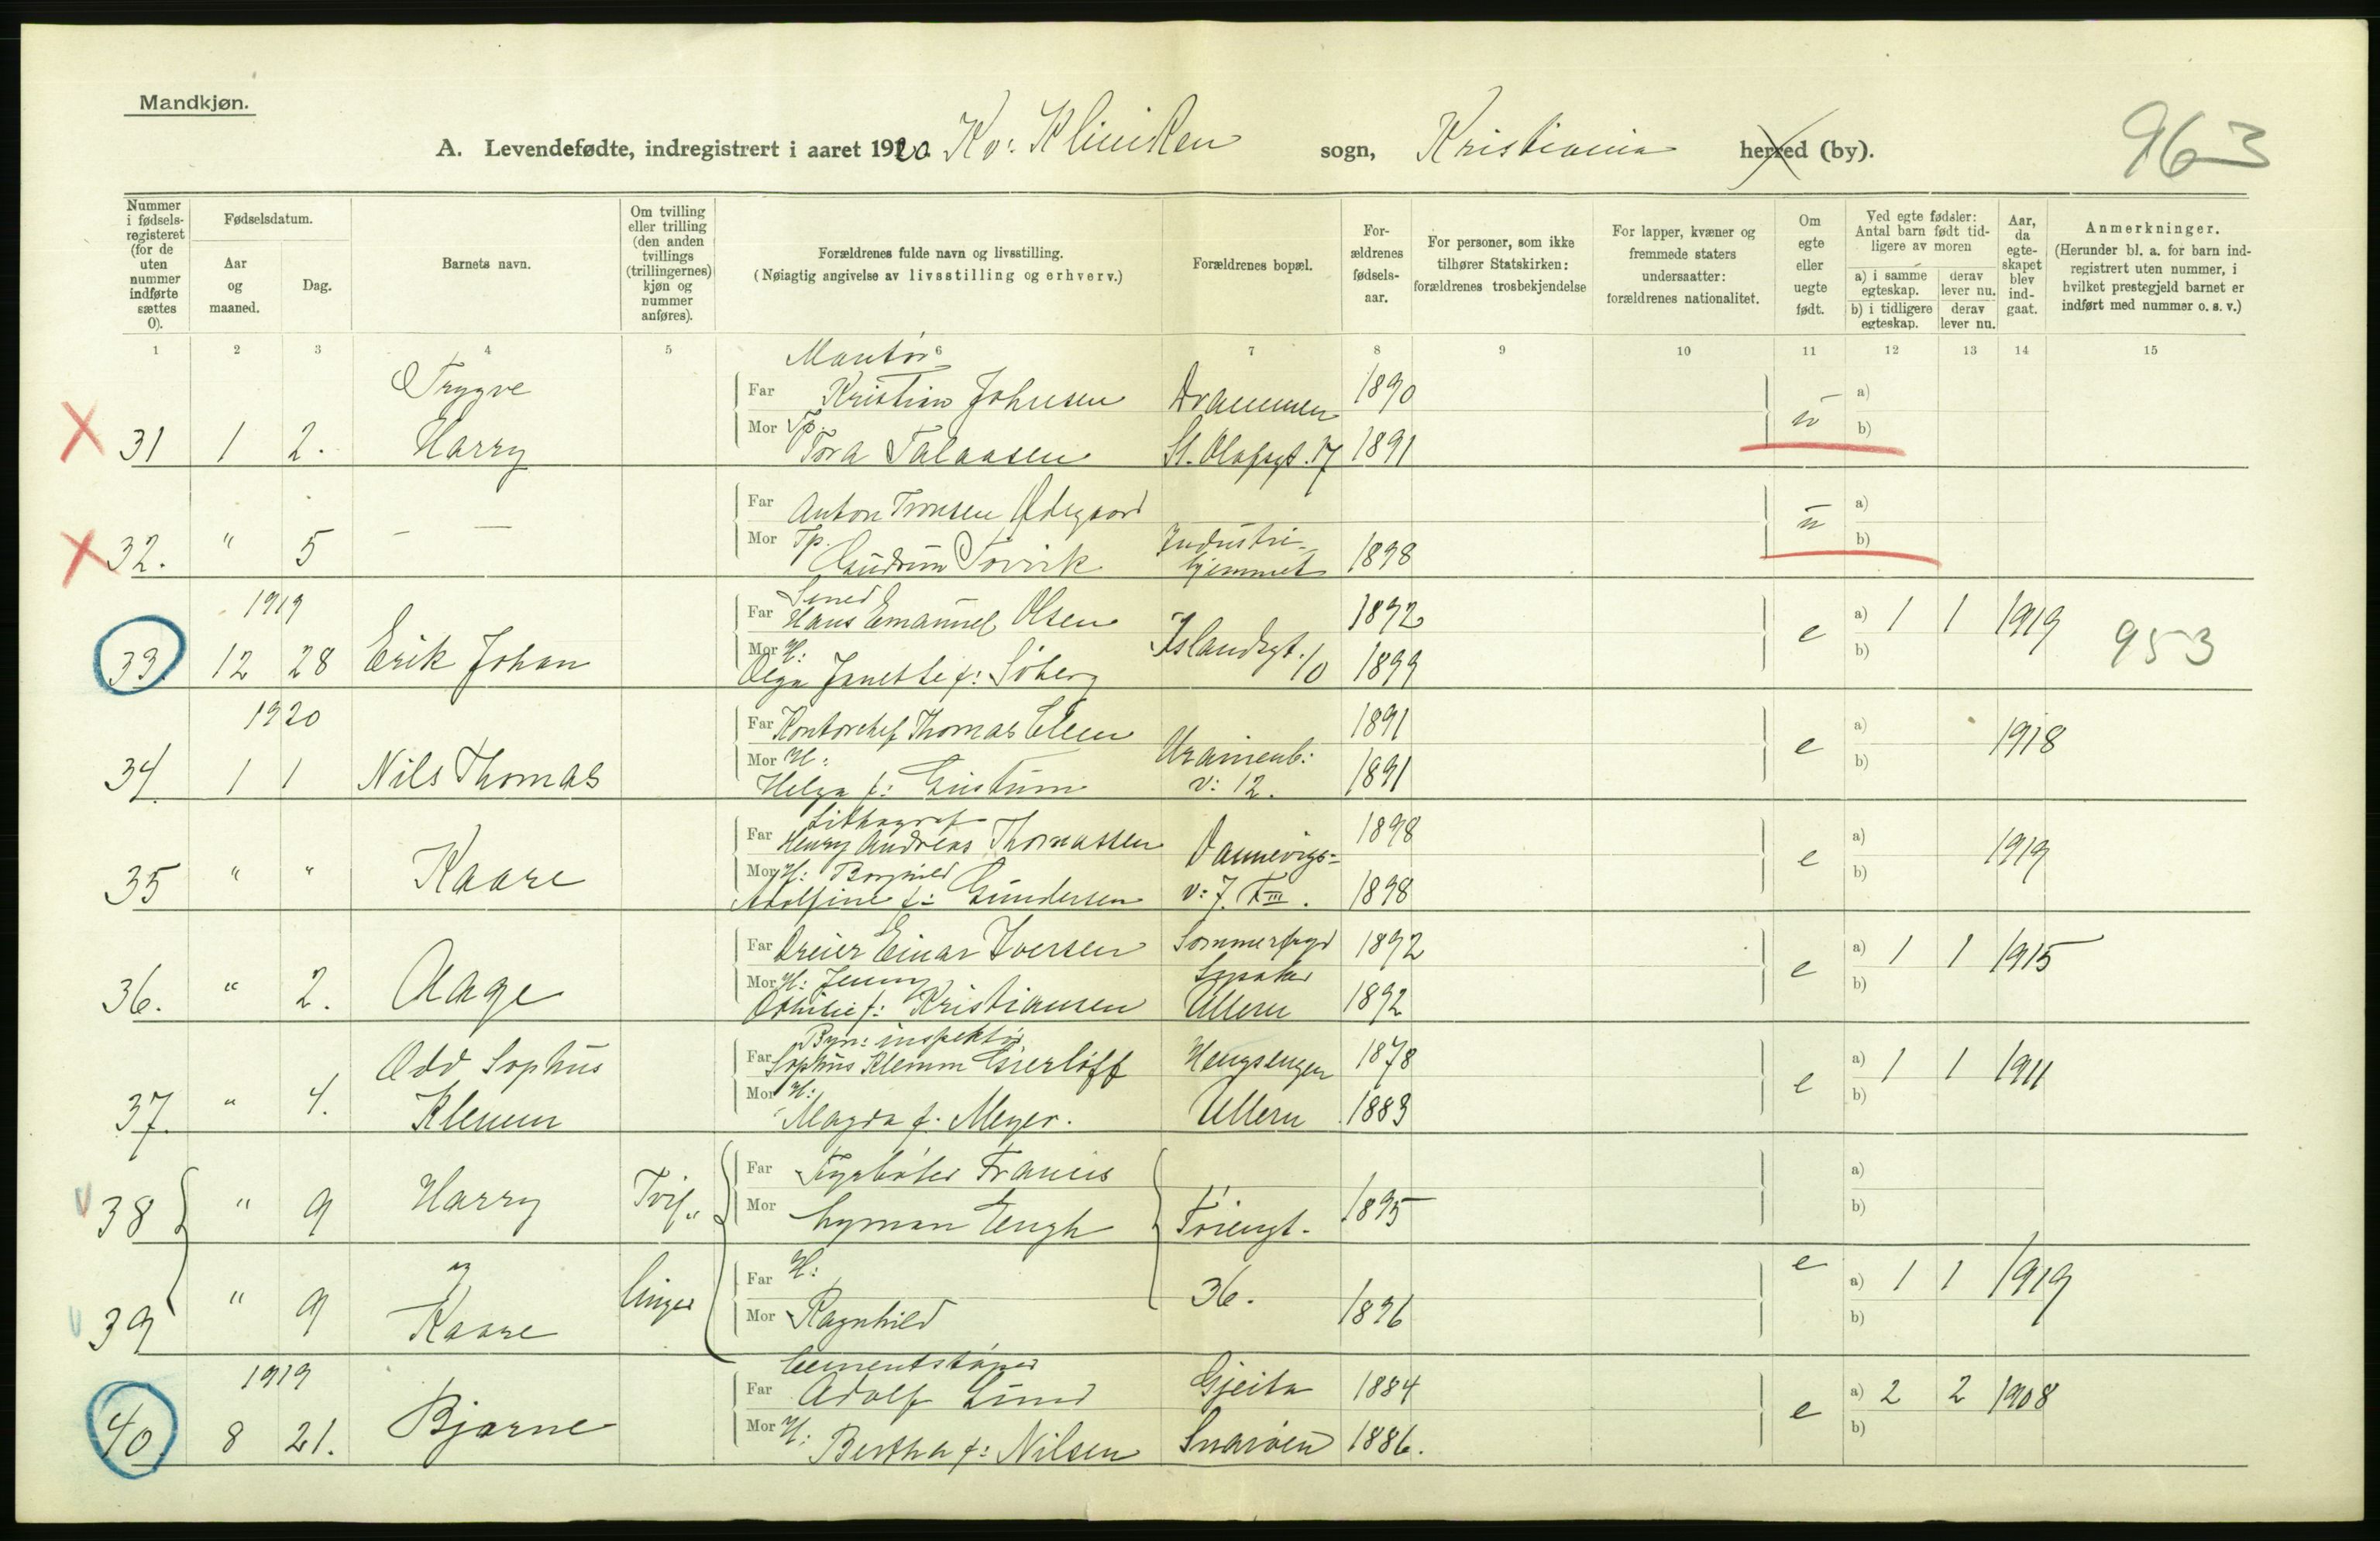 Mandkjøn.
963
A. Levendefødte, indregistrert i aaret 1920. Kv: Kliniken sogn, Kristiania herred (by).
Nummer i fødsels-registeret (for de uten nummer indførte sættes 0).
Fødselsdatum.
Aar og maaned.
Dag.
Barnets navn.
Om tvilling eller trilling (den anden tvillings (trillingernes) kjøn og nummer anføres).
Forældrenes fulde navn og livsstilling.
(Nøiagtig angivelse av livsstilling og erhverv.)
Forældrenes bopæl.
For-ældrenes fødsels-aar.
For personer, som ikke tilhører Statskirken: forældrenes trosbekjendelse
For lapper, kvæner og fremmede staters undersaatter: forældrenes nationalitet.
Om egte eller uegte født.
Ved egte fødsler: Antal barn født tid-ligere av moren
a) i samme egteskap. derav lever nu.
b) i tidligere egteskap. derav lever nu.
Aar, da egte-skapet blev ind-gaat.
Anmerkninger.
(Herunder bl. a. for barn ind-registrert uten nummer, i hvilket prestegjeld barnet er indført med nummer o. s. v.)
1 2 3 4 5 6 7 8 9 10 11 12 13 14 15
Montør
Trygve Far Kristian Johnsen Drammen 1890 u a)
31 1 2. Harry Mor Tp. Tora Talaasen St. Olafsgt. 17 1891 b)
Far Anton Tronsen Ødegaard u a)
32. " 5 — — Mor Tp. Gudrun Sørvik Industri-hjemmet 1898 b)
1919 Far Hans Emanuel Olsen 1892 e a) 1 1 1919
33 12 28 Erik Johan Mor H: Olga Janette f: Söberg Islandsgt. 10 1899 b) 953
1920 Far Kontorchef Thomas Olsen 1891 e a) 1918
34. 1 1 Nils Thomas Mor H: Helga f: Uranienb: v: 12. 1891 b)
Lithograf
Far Henry Andreas Thomassen Dannevigs- 1898 e a) 1919
35 " " Kaare Mor H: Borghild Adolfine f: Gundersen v: 7. 1898 b)
Far Dreier Einar Iversen 1892 e a) 1 1 1915
36. " 2. Aage Mor H: Jenny Othilie f: Kristiansen Lysaker Ullern 1892 b)
inspektør
Odd Sophus Far Sophus Klemm Gierløff Hengsengen 1878 e a) 1 1 1911
37. " 4. Klemm Mor H: Magda f. Meyer. Ullern 1883 b)
Far Fyrbøter Francis a)
38 " 9 Harry Tvil- Mor Lyman Engh Tøiengt. 1895 b)
og Far H: e a) 1 1 1919
39 " 9 Kaare linger Mor Ragnhild 36. 1896 b)
Cementstøper
1919 Far Adolf Lund Gjeita 1884 e a) 2 2 1908
40 8 21. Bjarne Mor H: Bertha f: Nilsen Snarøen 1886. b)